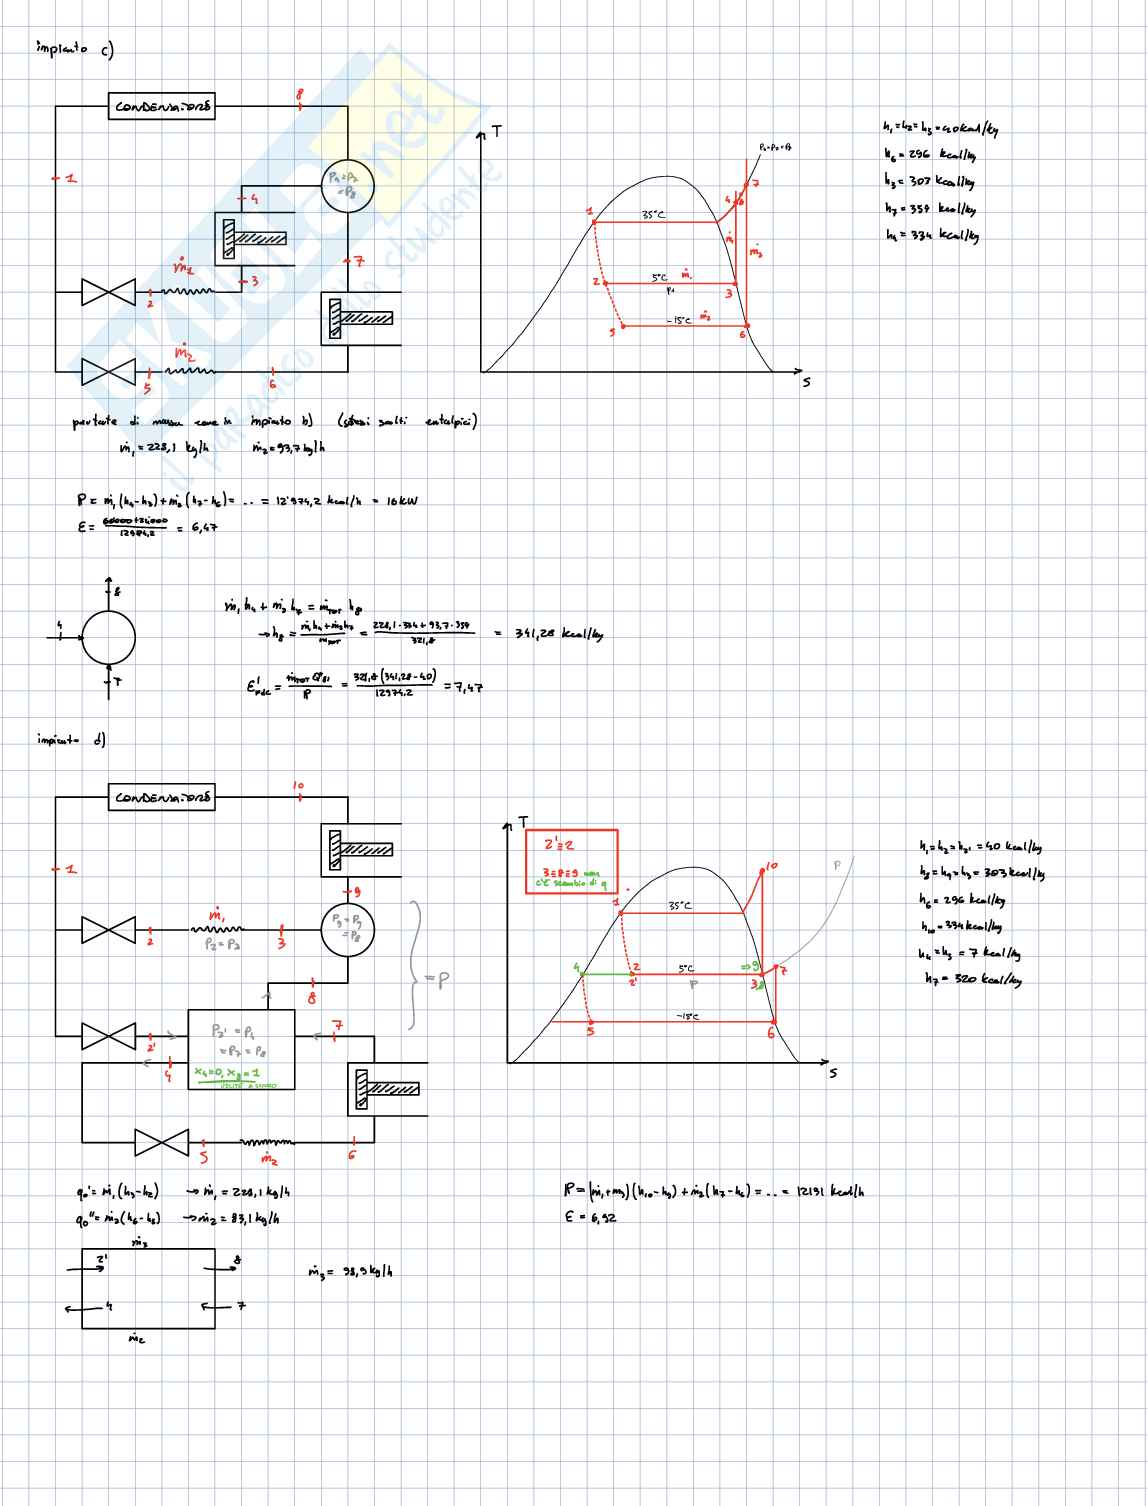 impianto c)
CONDENSATORE
8
1
P4=P7
=P8
4
ṁ1
3
2
7
ṁ2
5
6
T
P4=P7=P8
7
4
8
1
35°C
ṁ1
ṁ2
2
5°C
ṁ1
P1
3
5
-15°C
ṁ2
6
S
h1=h2=h5=40kcal/kg
h6=296 kcal/kg
h3=303 kcal/kg
h7=359 kcal/kg
h4=334 kcal/kg
portate di massa come in impianto b) (stessi salti entalpici)
ṁ1=228,1 kg/h ṁ2=93,7kg/h
P = ṁ1(h4-h3)+ṁ2(h7-h6)= .. = 12'974,2 kcal/h = 16kW
ε = 60000+24000 / 12974,2 = 6,47
8
4
7
ṁ1 h4 + ṁ2 h7 = ṁTOT h8
→h8 = ṁ1h4+ṁ2h7 / ṁTOT = 228,1·334 + 93,7·359 / 321,8 = 341,28 kcal/kg
ε'pdc = ṁTOT q81 / P = 321,8(341,28-40) / 12974.2 = 7,47
impianto d)
CONDENSATORE
10
1
9
ṁ1
P2=P3
2
3
P3=P9
=P8
=P
8
2'
P2'=P4
=P7=P8
7
4
x4=0, x8=1
5
ṁ2
6
T
2'≡2
3≡8≡9 non
c'è scambio di q
10
P
1
35°C
4
2
2'
5°C
P
⇒9
3
8
7
5
-15°C
6
S
h1=h2=h2'=40 kcal/kg
h8=h9=h3=303kcal/kg
h6=296 kcal/kg
h10=334kcal/kg
h4=h5=7 kcal/kg
h7=320 kcal/kg
q0'=ṁ1(h3-h2) →ṁ1=228,1kg/h
q0''=ṁ2(h6-h5) →ṁ2=83,1kg/h
ṁ3
2'
8
4
7
ṁ2
ṁ3= 98,9kg/h
P=(ṁ1+ṁ3)(h10-h9)+ṁ2(h7-h6)=..= 12131 kcal/h
ε = 6,92